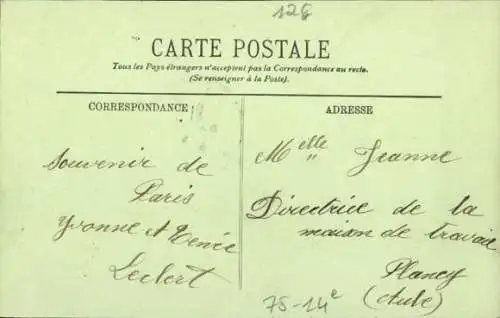 126
CARTE POSTALE
Tous les Pays étrangers n'acceptent pas la Correspondance au recto.
(Se renseigner à la Poste).
CORRESPONDANCE
Souvenir de
Paris
Yvonne et Renée
Leclert
ADRESSE
Melle Jeanne
Directrice de la
maison de travail
Plancy
(Aube)
75-14e